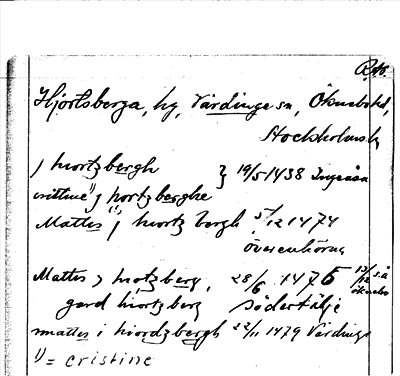 RAä.
Hjortsberga, hg, Vårdinge sn, Öknebo hd,
Stockholms l.
j hiortzbergh } 19/5 1438
cristine 1) j hortzberghe
Mattes j hiortz bergh 5/12 1474
Överenhörna
Mattes j hiortzberg, 28/6 1476 13/12 s.å
gard hiortzberg Södertälje Öknebo
mattes i hiordzbergh 22/11 1479 Vårdinge
1) = cristine